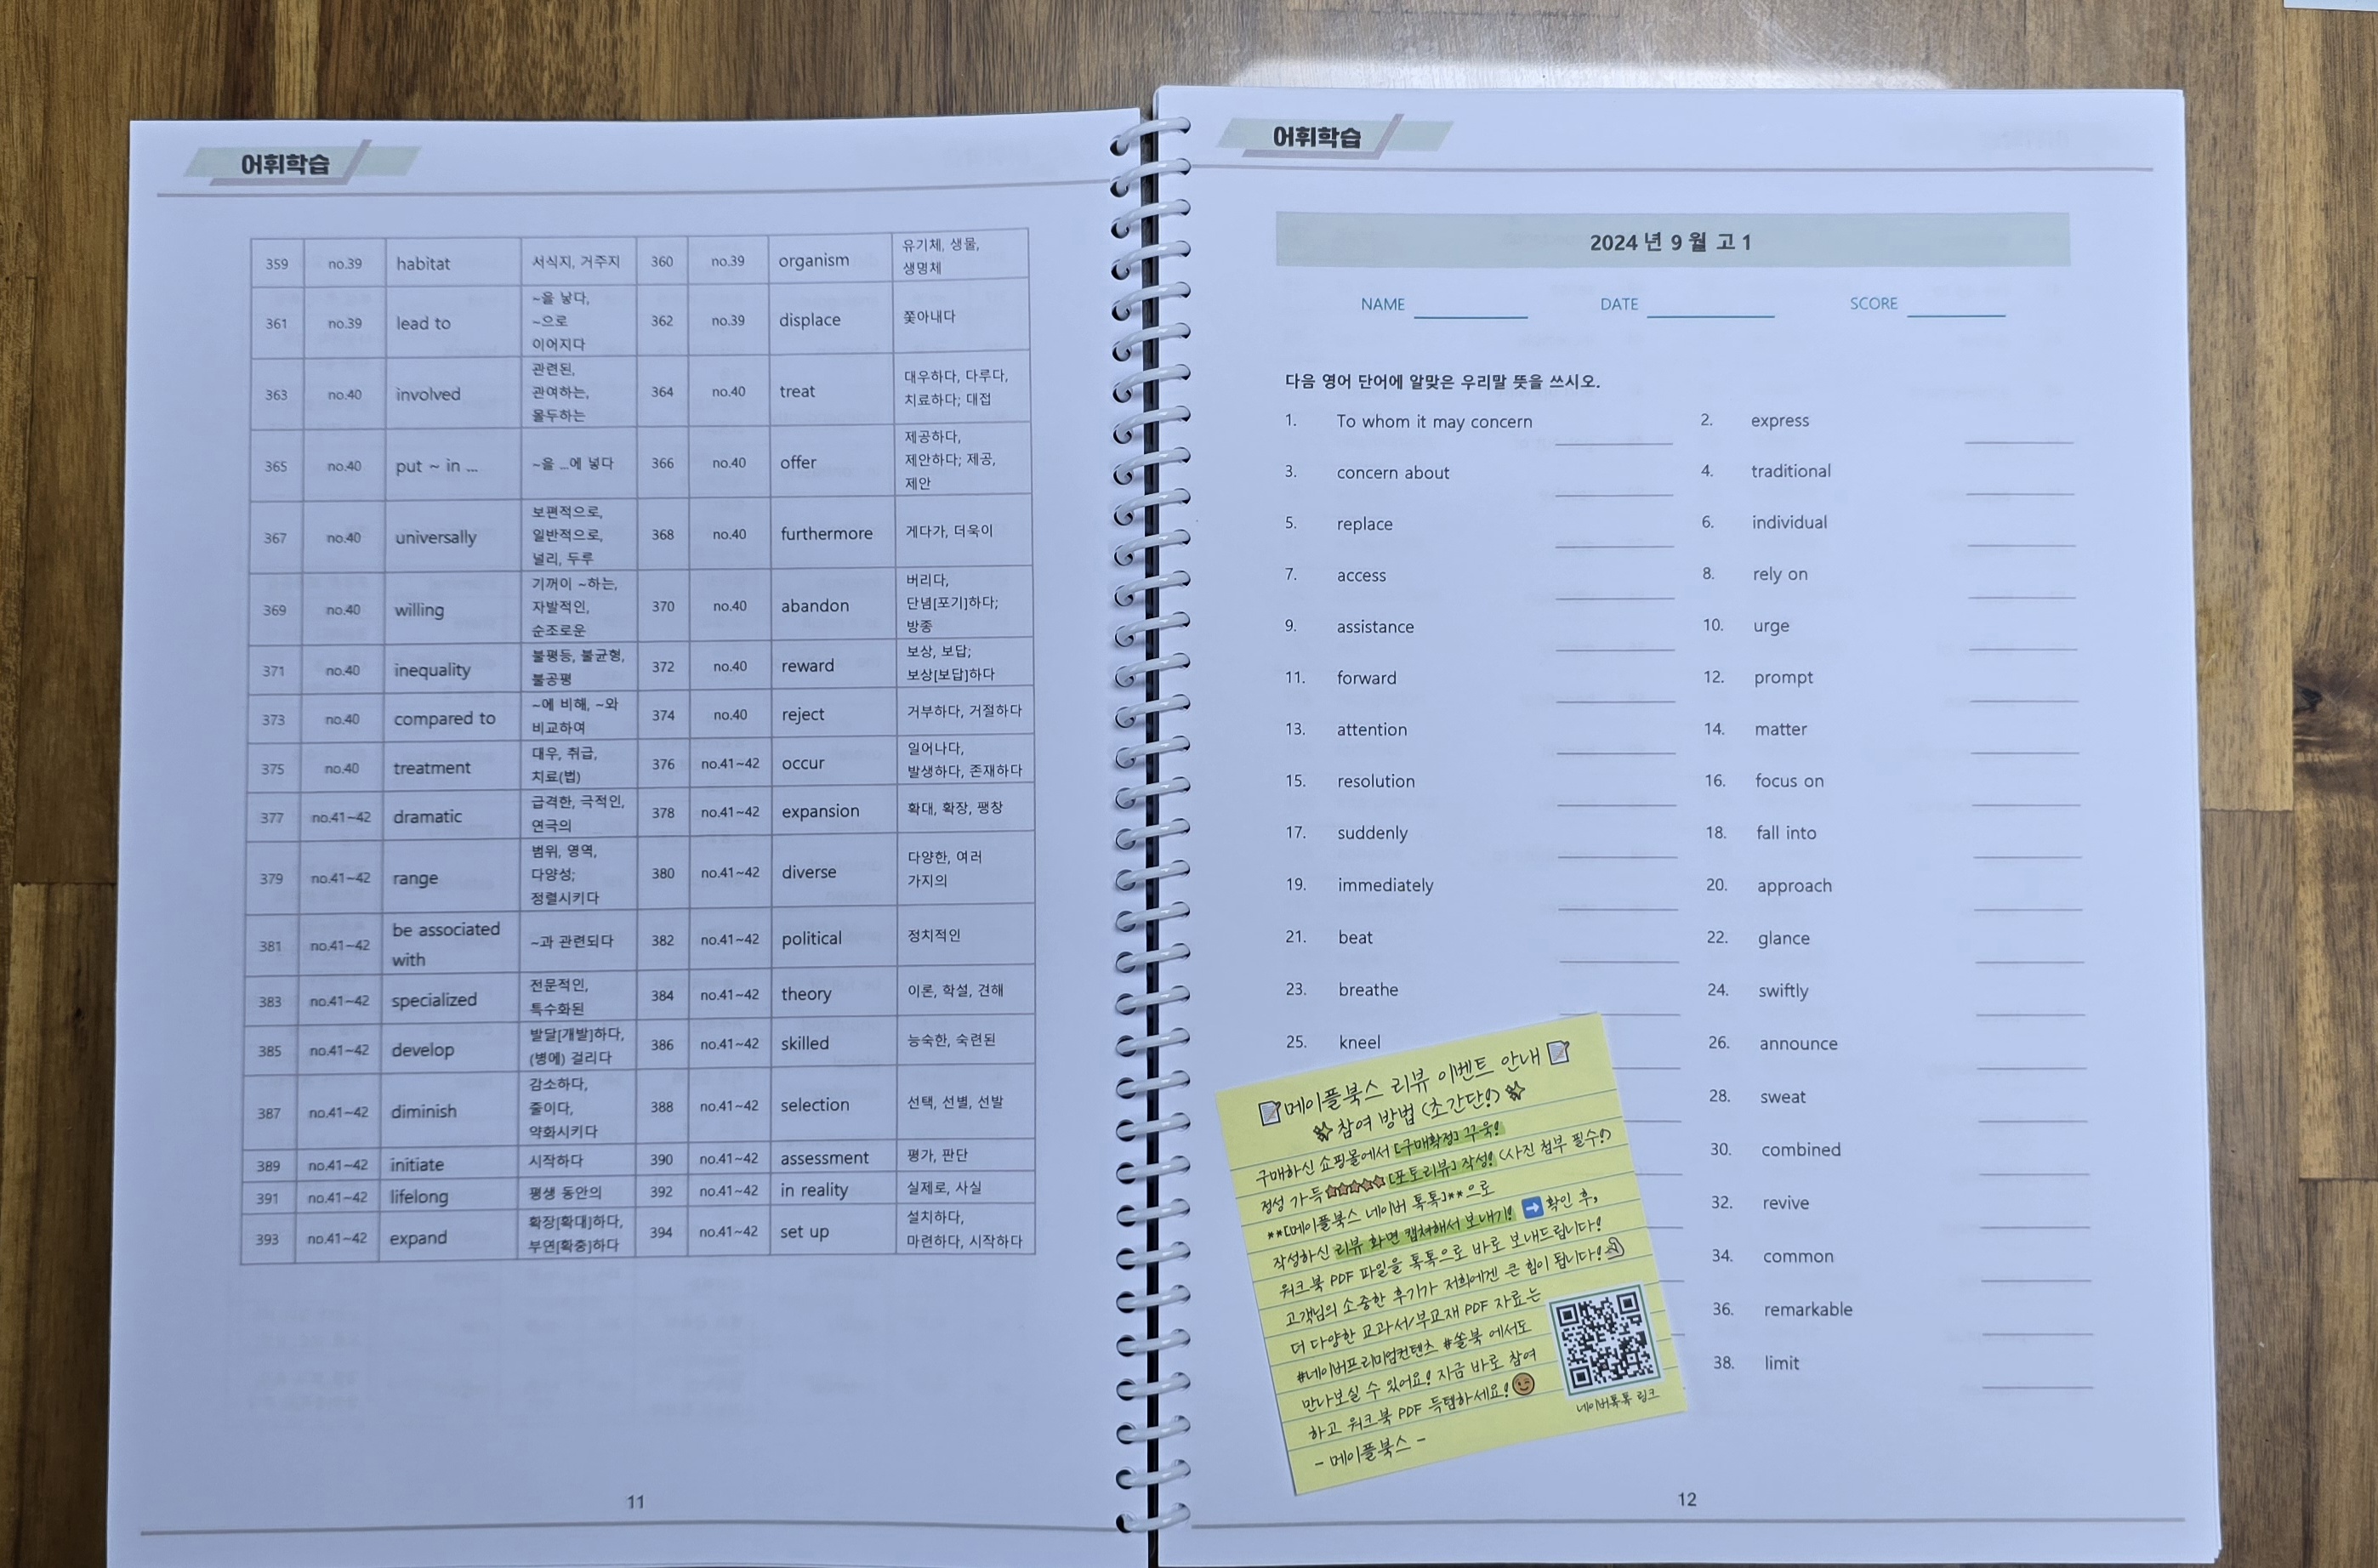 어휘학습
359 no.39 habitat 서식지, 거주지 360 no.39 organism 유기체, 생물, 생명체
361 no.39 lead to ~을 낳다, ~으로 이어지다 362 no.39 displace 쫓아내다
363 no.40 involved 관련된, 관여하는, 몰두하는 364 no.40 treat 대우하다, 다루다, 치료하다; 대접
365 no.40 put ~ in ... ~을 ...에 넣다 366 no.40 offer 제공하다, 제안하다; 제공, 제안
367 no.40 universally 보편적으로, 일반적으로, 널리, 두루 368 no.40 furthermore 게다가, 더욱이
369 no.40 willing 기꺼이 ~하는, 자발적인, 순조로운 370 no.40 abandon 버리다, 단념[포기]하다; 방종
371 no.40 inequality 불평등, 불균형, 불공평 372 no.40 reward 보상, 보답; 보상[보답]하다
373 no.40 compared to ~에 비해, ~와 비교하여 374 no.40 reject 거부하다, 거절하다
375 no.40 treatment 대우, 취급, 치료(법) 376 no.41~42 occur 일어나다, 발생하다, 존재하다
377 no.41~42 dramatic 급격한, 극적인, 연극의 378 no.41~42 expansion 확대, 확장, 팽창
379 no.41~42 range 범위, 영역, 다양성; 정렬시키다 380 no.41~42 diverse 다양한, 여러 가지의
381 no.41~42 be associated with ~과 관련되다 382 no.41~42 political 정치적인
383 no.41~42 specialized 전문적인, 특수화된 384 no.41~42 theory 이론, 학설, 견해
385 no.41~42 develop 발달[개발]하다, (병에) 걸리다 386 no.41~42 skilled 능숙한, 숙련된
387 no.41~42 diminish 감소하다, 줄이다, 약화시키다 388 no.41~42 selection 선택, 선별, 선발
389 no.41~42 initiate 시작하다 390 no.41~42 assessment 평가, 판단
391 no.41~42 lifelong 평생 동안의 392 no.41~42 in reality 실제로, 사실
393 no.41~42 expand 확장[확대]하다, 부연[확충]하다 394 no.41~42 set up 설치하다, 마련하다, 시작하다
11
어휘학습
2024년 9월 고1
NAME DATE SCORE
다음 영어 단어에 알맞은 우리말 뜻을 쓰시오.
1. To whom it may concern 2. express
3. concern about 4. traditional
5. replace 6. individual
7. access 8. rely on
9. assistance 10. urge
11. forward 12. prompt
13. attention 14. matter
15. resolution 16. focus on
17. suddenly 18. fall into
19. immediately 20. approach
21. beat 22. glance
23. breathe 24. swiftly
25. kneel 26. announce
28. sweat
30. combined
32. revive
34. common
36. remarkable
38. limit
메이플북스 리뷰 이벤트 안내
참여 방법 (초간단!)
구매하신 쇼핑몰에서 [구매확정] 꾸욱!
정성 가득 [포토리뷰] 작성! (사진 첨부 필수!)
**[메이플북스 네이버 톡톡]**으로
작성하신 리뷰 화면 캡처해서 보내기! 확인 후,
워크북 PDF 파일을 톡톡으로 바로 보내드립니다!
고객님의 소중한 후기가 저희에겐 큰 힘이 됩니다!
더 다양한 교과서/부교재 PDF 자료는
#네이버프리미엄컨텐츠 #쏠북 에서도
만나보실 수 있어요! 지금 바로 참여
하고 워크북 PDF 득템하세요!
- 메이플북스 -
네이버톡톡 링크
12